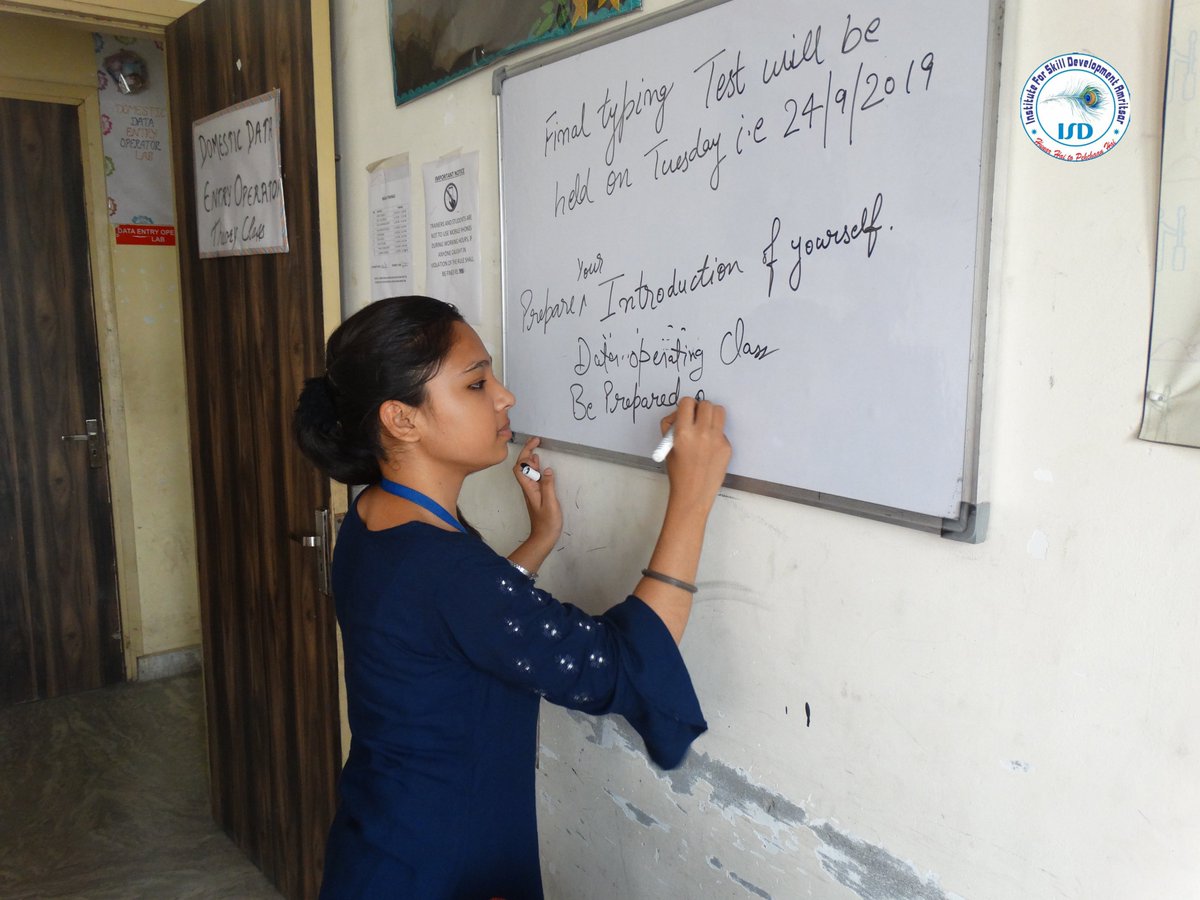 DOMESTIC
DATA
ENTRY
OPERATOR
LAB
DATA ENTRY OPE
LAB
DOMESTIC DATA
ENTRY OPERATOR
Theory Class
IMPORTANT NOTICE
TRAINERS AND STUDENTS ARE
NOT TO USE MOBILE PHONES
DURING WORKING HOURS. IF
ANYONE CAUGHT IN
VIOLATION OF THE RULE SHALL
BE FINED RS.
Final typing Test will be
held on Tuesday i.e 24/9/2019
Your
Prepare ^ Introduction of yourself.
Data operating Class
Be Prepared
Institute For Skill Development Amritsar
ISD
Hunar Hai to Pehchaan Hai